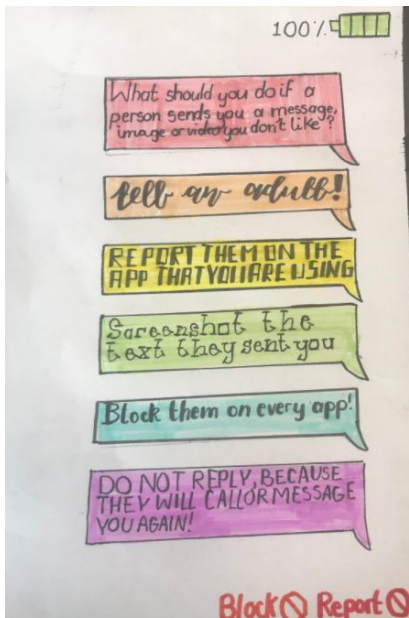 100%
What should you do if a
person sends you a message,
image or video you don't like?
tell an adult!
REPORT THEM ON THE
APP THAT YOU ARE USING
Screenshot the
text they sent you
Block them on every app!
DO NOT REPLY, BECAUSE
THEY WILL CALL OR MESSAGE
YOU AGAIN!
Block Report